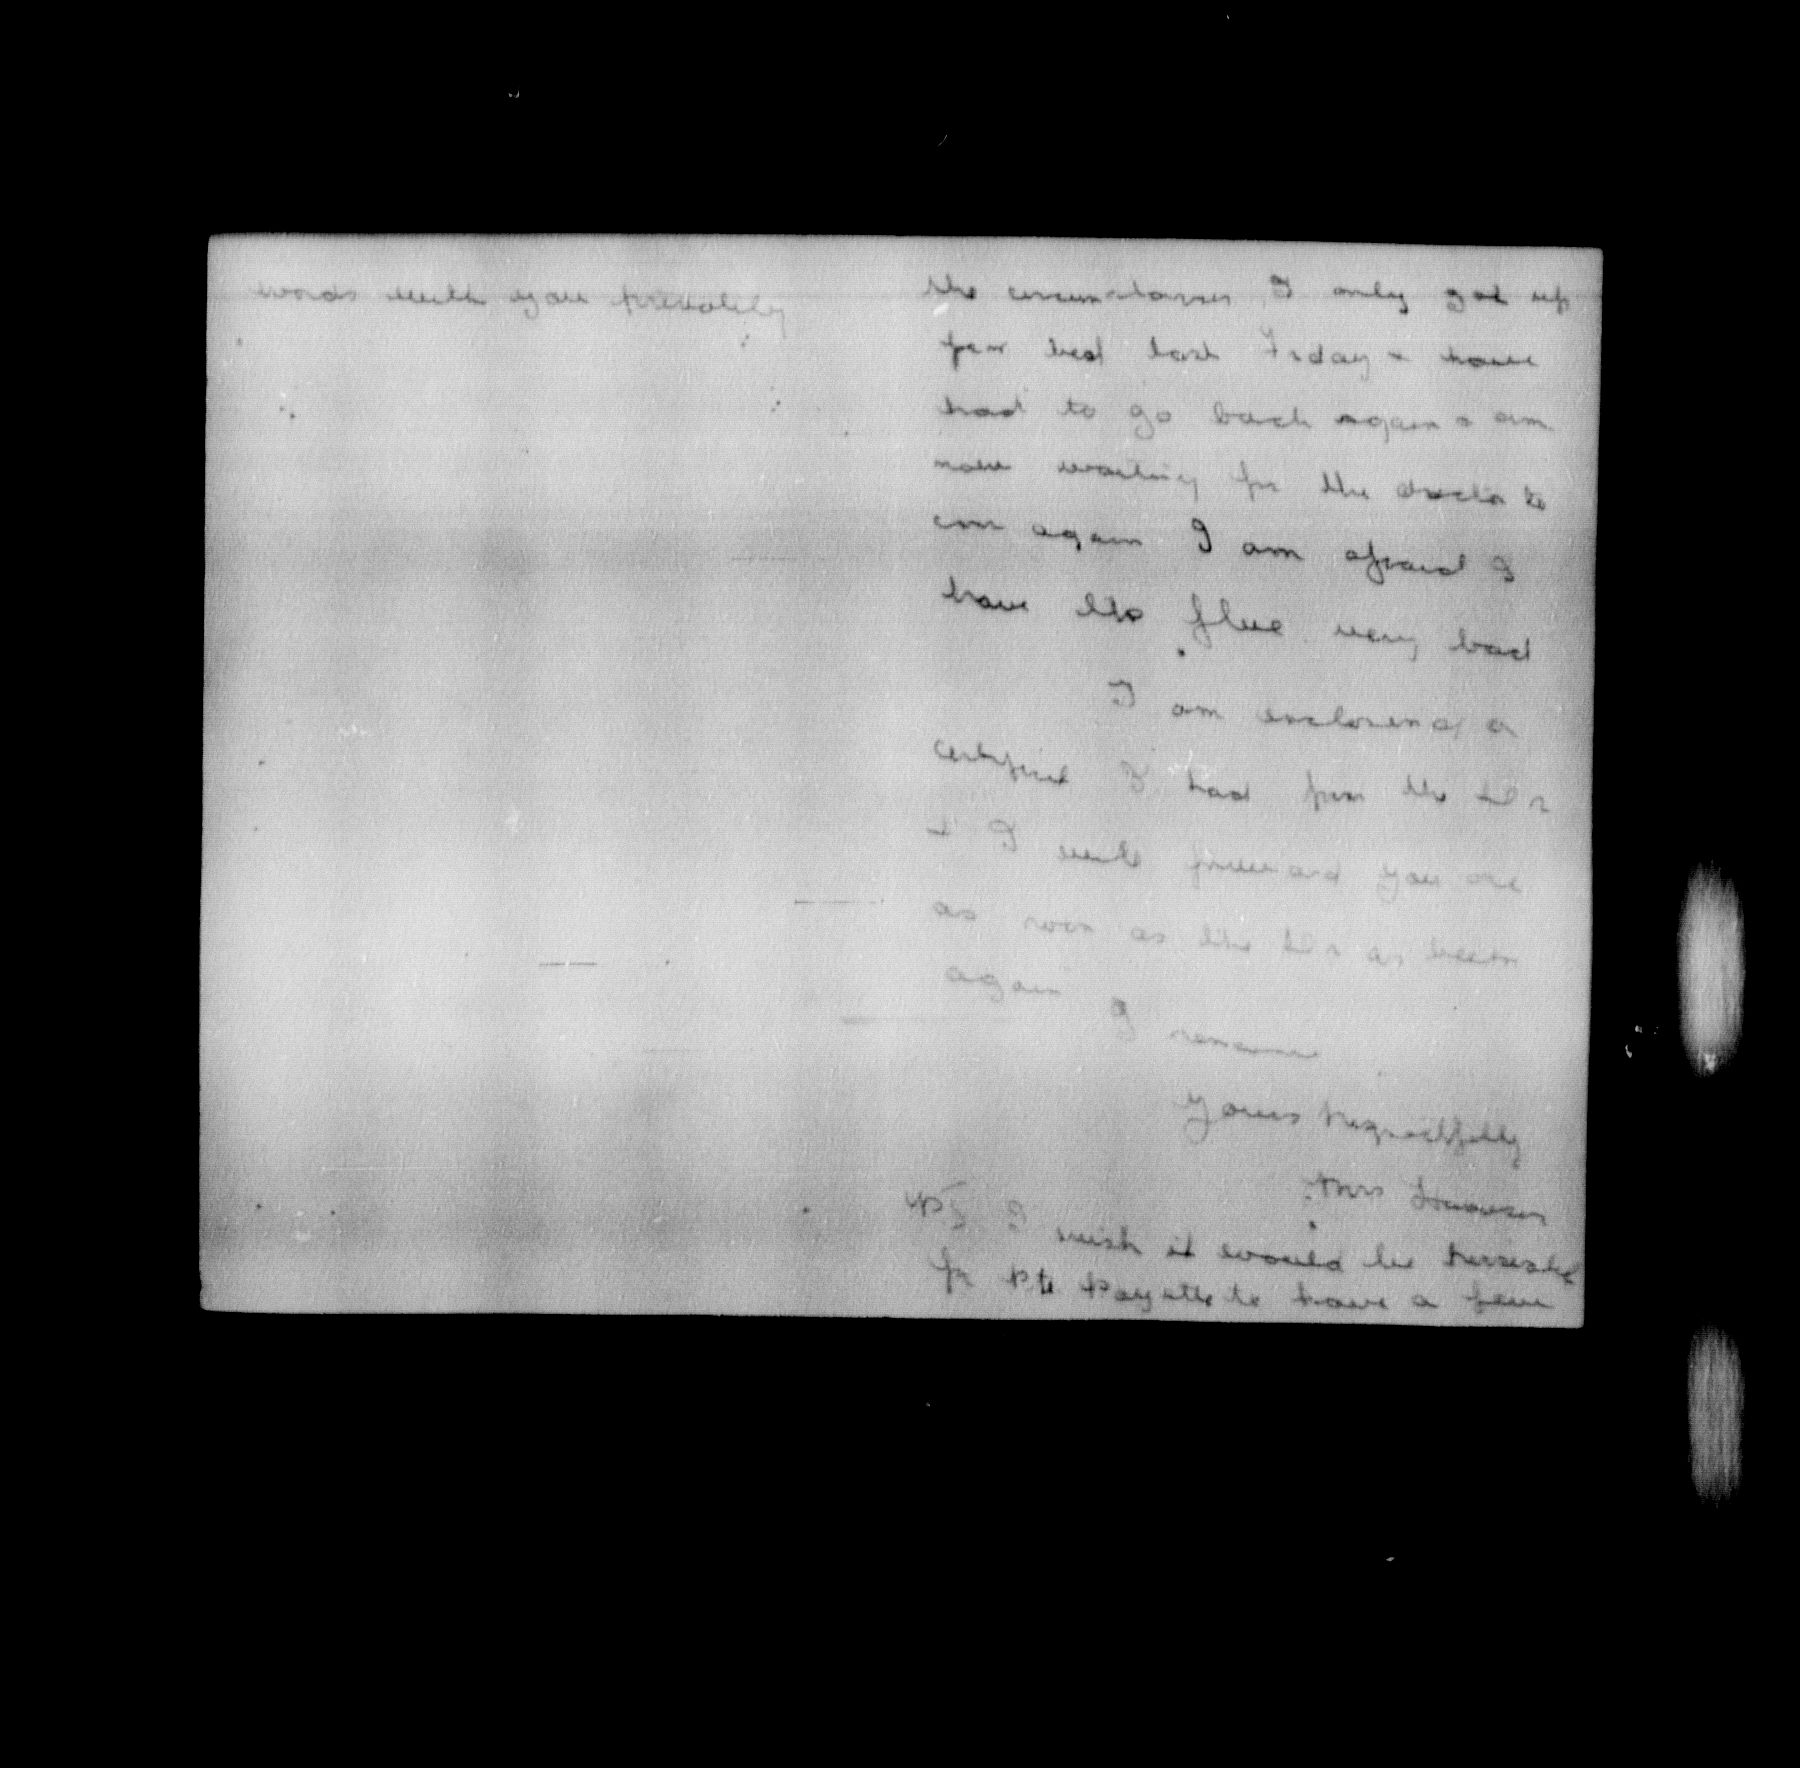 the circumstances I only got up
from bed last Friday & have
had to go back again & am
now waiting for the doctor to
come again I am afraid I
have this flue very bad
I am enclosing a
certificet I had from the Dr
& I will forward you one
as soon as the Dr as been
again I remain
Yours respectfully
Mrs
PS I wish it would be possible
for Pte to have a few
words with you privately